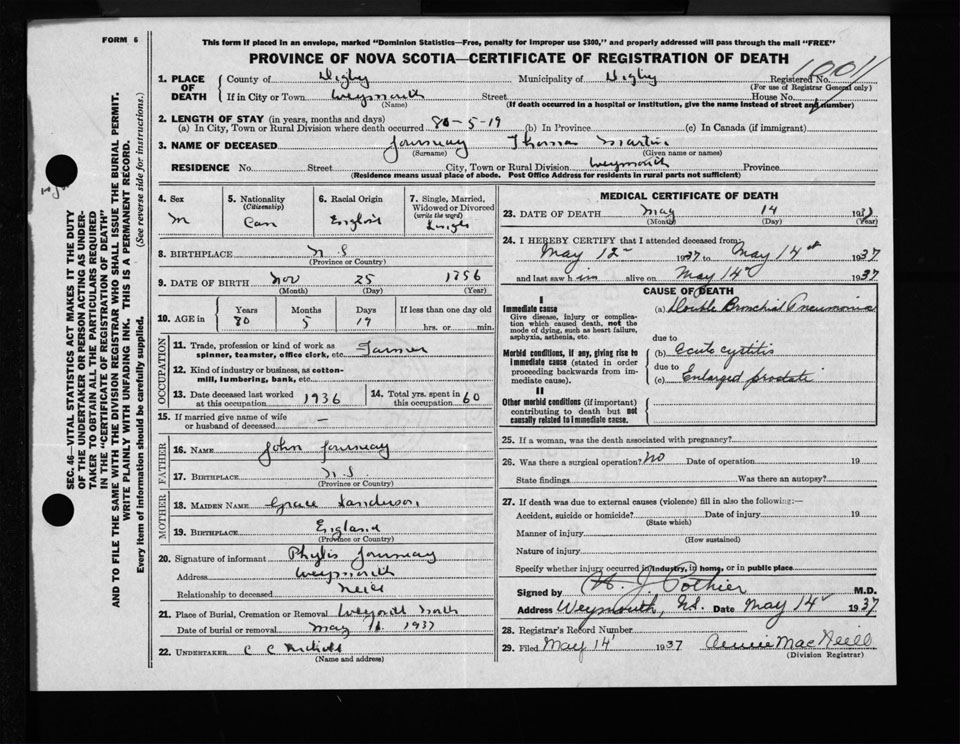 FORM 6
This form if placed in an envelope, marked "Dominion Statistics—Free, penalty for improper use $300," and properly addressed will pass through the mail "FREE"
PROVINCE OF NOVA SCOTIA—CERTIFICATE OF REGISTRATION OF DEATH
SEC. 46—VITAL STATISTICS ACT MAKES IT THE DUTY
OF THE UNDERTAKER OR PERSON ACTING AS UNDER-
TAKER TO OBTAIN ALL THE PARTICULARS REQUIRED
IN THE "CERTIFICATE OF REGISTRATION OF DEATH"
AND TO FILE THE SAME WITH THE DIVISION REGISTRAR WHO SHALL ISSUE THE BURIAL PERMIT.
WRITE PLAINLY WITH UNFADING INK. THIS IS A PERMANENT RECORD.
Every item of information should be carefully supplied. (See reverse side for instructions.)
1. PLACE OF DEATH County of Digby Municipality of Digby Registered No. 1001
(For use of Registrar General only)
If in City or Town Weymouth Street House No.
(Name) (If death occurred in a hospital or institution, give the name instead of street and number)
2. LENGTH OF STAY (in years, months and days)
(a) In City, Town or Rural Division where death occurred 80-5-19 (b) In Province (c) In Canada (if immigrant)
3. NAME OF DECEASED Journeay Thomas Martin
(Surname) (Given name or names)
RESIDENCE No. Street City, Town or Rural Division Weymouth Province
(Residence means usual place of abode. Post Office Address for residents in rural parts not sufficient)
4. Sex 5. Nationality (Citizenship) 6. Racial Origin 7. Single, Married, Widowed or Divorced (write the word)
M Can English Single
8. BIRTHPLACE N.S
(Province or Country)
9. DATE OF BIRTH Nov 25 1856
(Month) (Day) (Year)
10. AGE in Years Months Days If less than one day old
80 5 19 hrs. or min.
OCCUPATION
11. Trade, profession or kind of work as spinner, teamster, office clerk, etc. Farmer
12. Kind of industry or business, as cotton-mill, lumbering, bank, etc.
13. Date deceased last worked at this occupation 1936 14. Total yrs. spent in this occupation 60
15. If married give name of wife or husband of deceased —
FATHER
16. NAME John Journeay
17. BIRTHPLACE N.S.
(Province or Country)
MOTHER
18. MAIDEN NAME Grace Sanderson
19. BIRTHPLACE England
(Province or Country)
20. Signature of informant Phylis Journeay
Address Weymouth
Relationship to deceased Neice
21. Place of Burial, Cremation or Removal Weymouth North
Date of burial or removal May 16 1937
22. UNDERTAKER C C
(Name and address)
MEDICAL CERTIFICATE OF DEATH
23. DATE OF DEATH May 14 1937
(Month) (Day) (Year)
24. I HEREBY CERTIFY that I attended deceased from:
May 12 1937 to May 14 1937
and last saw him alive on May 14 1937
CAUSE OF DEATH
I
Immediate cause (a) Double Bronchial Pneumonia
Give disease, injury or complication which caused death, not the mode of dying, such as heart failure, asphyxia, asthenia, etc.
due to
Morbid conditions, if any, giving rise to immediate cause (stated in order proceeding backwards from immediate cause). (b) Acute cystitis
due to
(c) Enlarged prostate
II
Other morbid conditions (if important) contributing to death but not causally related to immediate cause.
25. If a woman, was the death associated with pregnancy?
26. Was there a surgical operation? No Date of operation 19
State findings Was there an autopsy?
27. If death was due to external causes (violence) fill in also the following:—
Accident, suicide or homicide? Date of injury 19
(State which)
Manner of injury
(How sustained)
Nature of injury
Specify whether injury occurred in industry, in home, or in public place
Signed by H. J. Pothier M.D.
Address Weymouth, N.S. Date May 14 1937
28. Registrar's Record Number
29. Filed May 14 1937 Annie MacNeill
(Division Registrar)